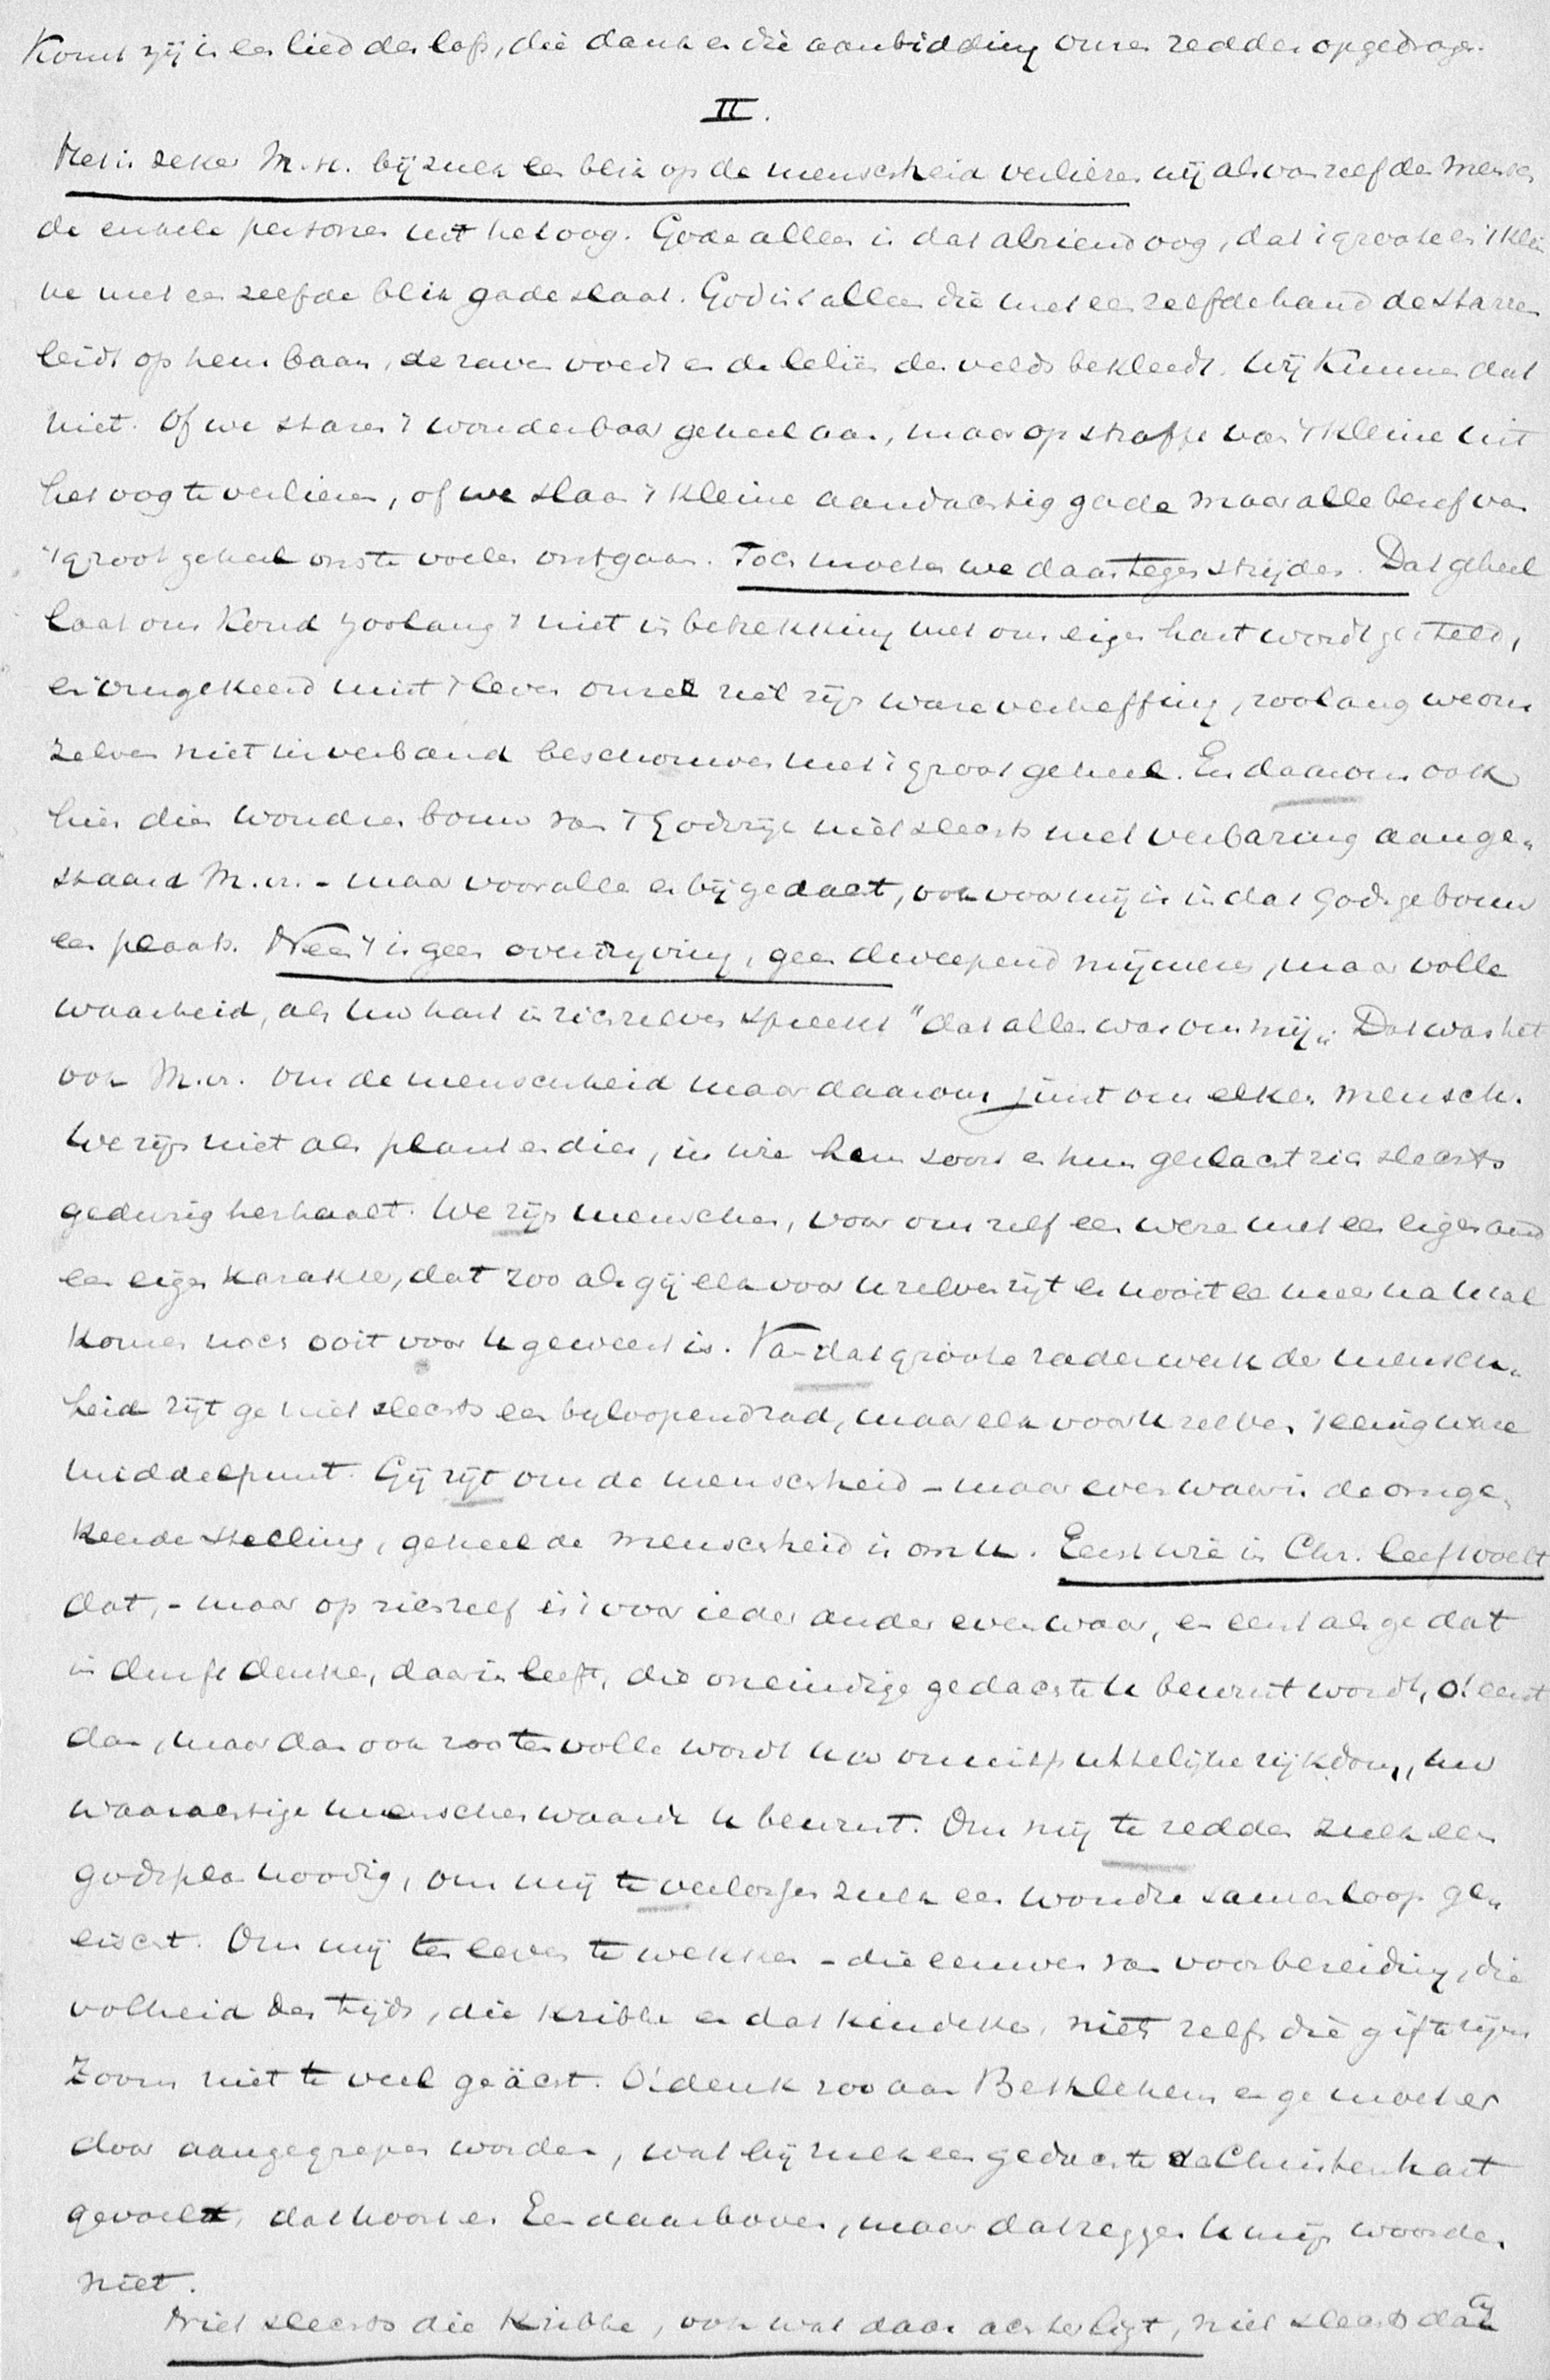 Komt zij in een lied des lofs, die dank en die aanbidding onzen redder opgedragen.
II.
Het is zeker M. H. bij zulk een blik op de menscheid verliezen wij als van zelf den mensch
de enkele personen uit het oog. Gode alleen is dat alziend oog, dat 't groote en 't klei
ne met een zelfde blik gade slaat. God is 't alleen die met een zelfde hand de starren
leidt op hun baan, de raven voedt en de leliën des velds bekleedt. Wij kunnen dat
niet. Of we staren 't wonderbaar geheel aan, maar op straffe van 't kleine uit
het oog te verliezen, of we slaan 't kleine aandachtig gade maar alle besef van
't groot geheel ons te voelen ontgaan. Toch moeten we daartegen strijden. Dat geheel
laat ons koud zoolang 't niet in betrekking met ons eigen hart wordt gesteld,
en omgekeerd mist 't leven onzer ziel zijn ware verheffing, zoolang we ons
zelven niet in verband beschouwen met 't groot geheel. En daarom ook
hier dien wondren bouw van 't Godsrijk niet slechts met verbazing aange„
staard M. H. - maar vooral er bij gedacht, ook voor mij is in dat Godsgebouw
een plaats. Neen 't is geen overdrijving, geen dweepend mijmeren, maar volle
waarheid, als uw hart in zichzelven spreekt "dat alles was om mij„. Dat was het
ook M. H. om de menschheid maar daarom juist om elken mensch.
We zijn niet als plant en dier, in wie hun soort en hun geslacht zich slechts
gedurig herhaalt. We zijn menschen, voor ons zelf een wereld met een eigen aard
een eigen karakter, dat zoo als gij elk voor u zelven zijt er nooit een meer na u zal
komen noch ooit voor u geweest is. Van dat groote raderwerk der mensch„
heid zijt ge niet slechts een bijloopend rad, maar elk voor u zelven 't eenig ware
middelpunt. Gij zijt om de menscheid - maar even waar is de omge„
keerde stelling, geheel de menscheid is om u. Eerst wie in Chr. leeft voelt
dat, - maar op zichzelf is 't voor ieder ander even waar, en eerst als ge dat
in durft denken, daarin leeft, die oneindige gedachte u bewust wordt, o! eerst
dan, maar dan ook zoo ten volle wordt uw onuitputtelijke rijkdom, uw
waarachtige menschenwaarde u bewust. Om mij te redden zulk een
godsplan noodig, om mij te verlossen zulk een wondre samenloop ge„
eischt. Om mij ten leven te wekken - die eeuwen van voorbereiding, die
volheid des tijds, die kribbe en dat kindeke, niets zelfs die gifte zijns
Zoons niet te veel geächt. O! denk zoo aan Bethlehem en ge moet er
door aangegrepen worden, wat bij zulk een gedachte het Christenhart
gevoelt, dat hoort er Een daarboven, maar dat zeggen u mijn woorden
niet.
Niet slechts die kribbe, ook wat daar achter ligt, niet slechts dat